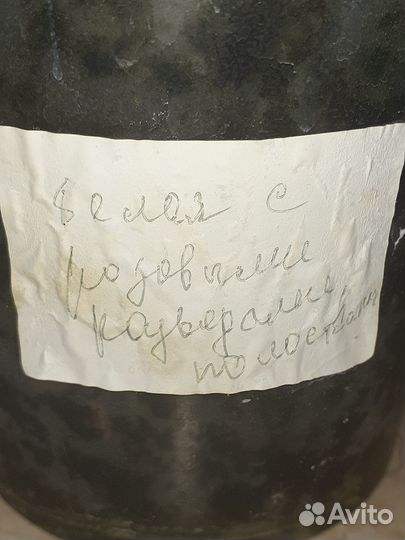 белая с
розовыми
полосками
Avito